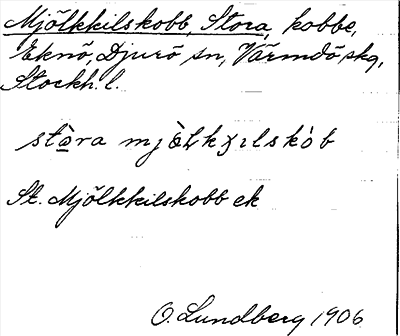 Mjölkkilskobb, Stora, kobbe,
Eknö, Djurö sn, Värmdö skg,
Stockh. l.
stòra mjòłkχılskòb
St. Mjölkkilskobb ek
O. Lundberg 1906